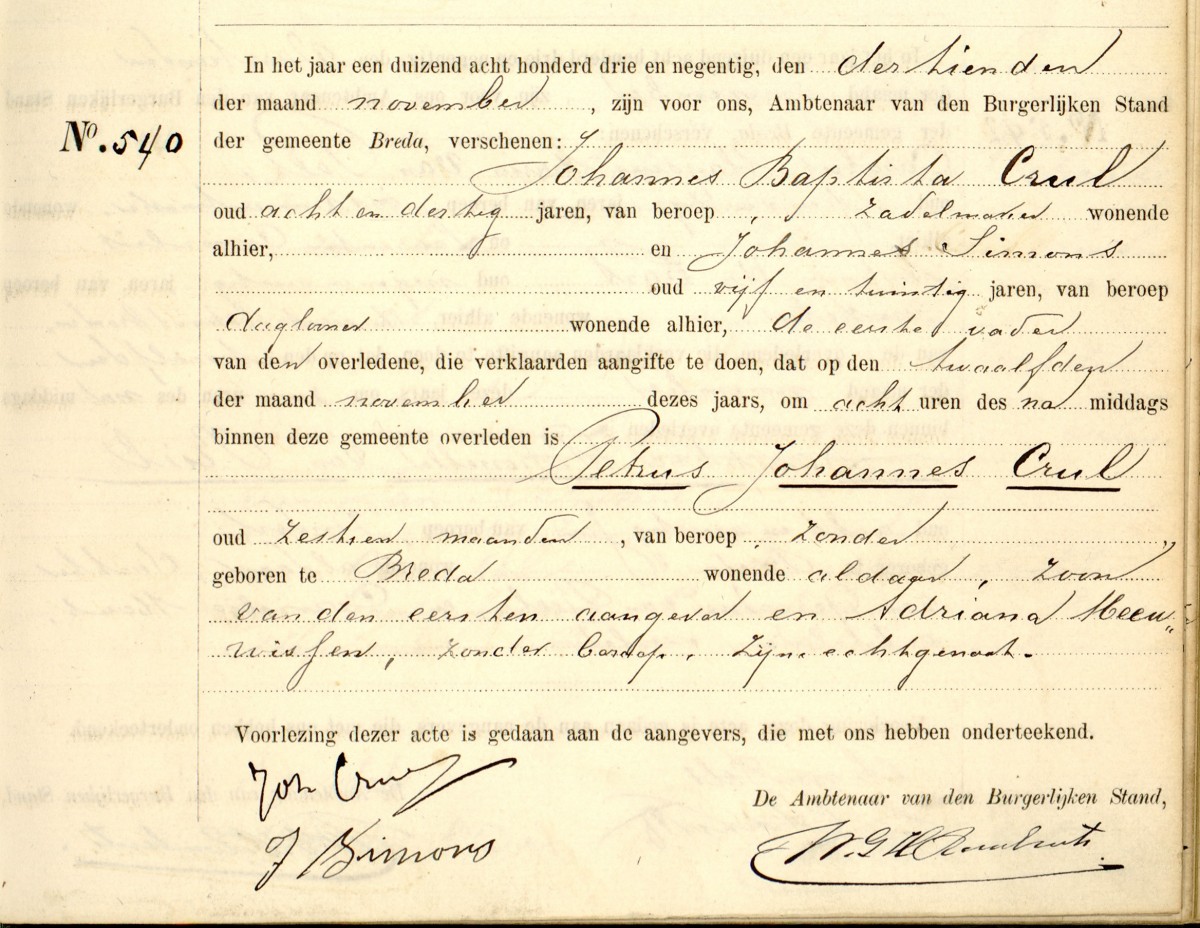 In het jaar een duizend acht honderd drie en negentig, den dertienden
der maand november, zijn voor ons, Ambtenaar van den Burgerlijken Stand
No. 540
der gemeente Breda, verschenen:
Johannes Baptista Crul
oud acht en dertig jaren, van beroep zadelmaker wonende
alhier, en Johannes Simons
oud vijf en twintig jaren, van beroep
daglooner wonende alhier, de eerste vader
van den overledene, die verklaarden aangifte te doen, dat op den twaalfden
der maand november dezes jaars, om acht uren des na middags
binnen deze gemeente overleden is
Petrus Johannes Crul
oud zestien maanden, van beroep zonder
geboren te Breda wonende aldaar, zoon
van den eersten aangever en Adriana Meeu„
wissen, zonder beroep, zijne echtgenoot.
Voorlezing dezer acte is gedaan aan de aangevers, die met ons hebben onderteekend.
Joh Crul
De Ambtenaar van den Burgerlijken Stand,
J Simons